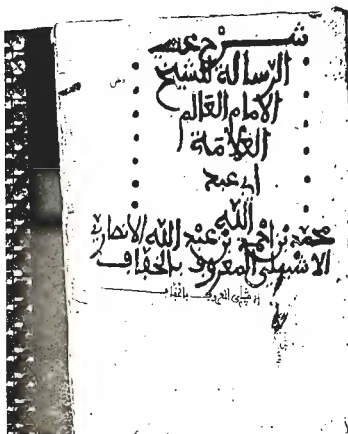 شرح عقيدة
الرسالة للشيخ
الإمام العالم
العلامة
أبي عبد
الله
محمد بن أحمد بن عبد الله الأنصاري
الاشبيلي المعروف بالخفاف
المعروف بالخفاف